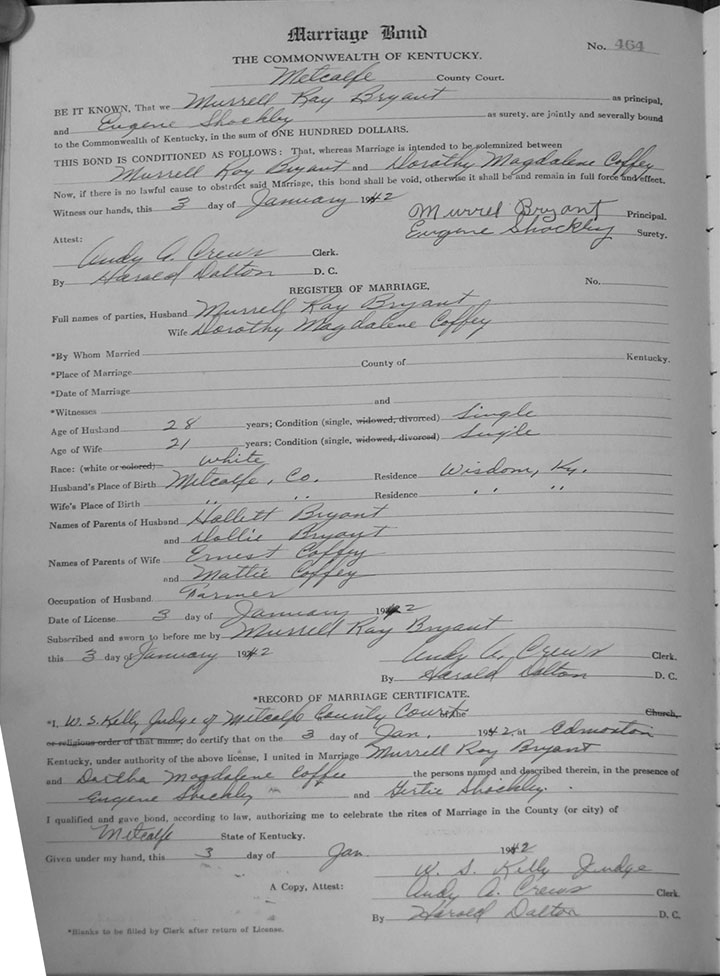 Marriage Bond
No. 464
THE COMMONWEALTH OF KENTUCKY.
Metcalfe County Court.
BE IT KNOWN, That we Murrell Ray Bryant as principal,
and Eugene Shockley as surety, are jointly and severally bound
to the Commonwealth of Kentucky, in the sum of ONE HUNDRED DOLLARS.
THIS BOND IS CONDITIONED AS FOLLOWS: That, whereas Marriage is intended to be solemnized between
Murrell Ray Bryant and Dorothy Magdalene Coffey
Now, if there is no lawful cause to obstruct said Marriage, this bond shall be void, otherwise it shall be and remain in full force and effect.
Witness our hands, this 3 day of January 1942
Murrel Bryant Principal.
Eugene Shockley Surety.
Attest:
Andy A. Crews Clerk.
By Harold Dalton D. C.
REGISTER OF MARRIAGE. No.
Full names of parties, Husband Murrell Ray Bryant
Wife Dorothy Magdalene Coffey
*By Whom Married
*Place of Marriage County of Kentucky.
*Date of Marriage
*Witnesses and
Age of Husband 28 years; Condition (single, widowed, divorced) Single
Age of Wife 21 years; Condition (single, widowed, divorced) Single
Race: (white or colored) white
Husband's Place of Birth Metcalfe, Co. Residence Wisdom, Ky.
Wife's Place of Birth " " Residence " "
Names of Parents of Husband Hollett Bryant
and Hollie Bryant
Names of Parents of Wife Ernest Coffey
and Mattie Coffey
Occupation of Husband Farmer
Date of License 3 day of January 1942
Subscribed and sworn to before me by Murrell Ray Bryant
this 3 day of January 1942
Andy A. Crews Clerk.
By Harold Dalton D. C.
*RECORD OF MARRIAGE CERTIFICATE.
*I, W. S. Kelly Judge of Metcalfe County Court of the Church,
or religious order of that name, do certify that on the 3 day of Jan. 1942, at Edmonton
Kentucky, under authority of the above license, I united in Marriage Murrell Ray Bryant
and Dortha Magdalene Coffee the persons named and described therein, in the presence of
Eugene Shockley and Girtie Shockley.
I qualified and gave bond, according to law, authorizing me to celebrate the rites of Marriage in the County (or city) of
Metcalfe State of Kentucky.
Given under my hand, this 3 day of Jan. 1942
W. S. Kelly Judge
A Copy, Attest: Andy A. Crews Clerk.
By Harold Dalton D. C.
*Blanks to be filled by Clerk after return of License.